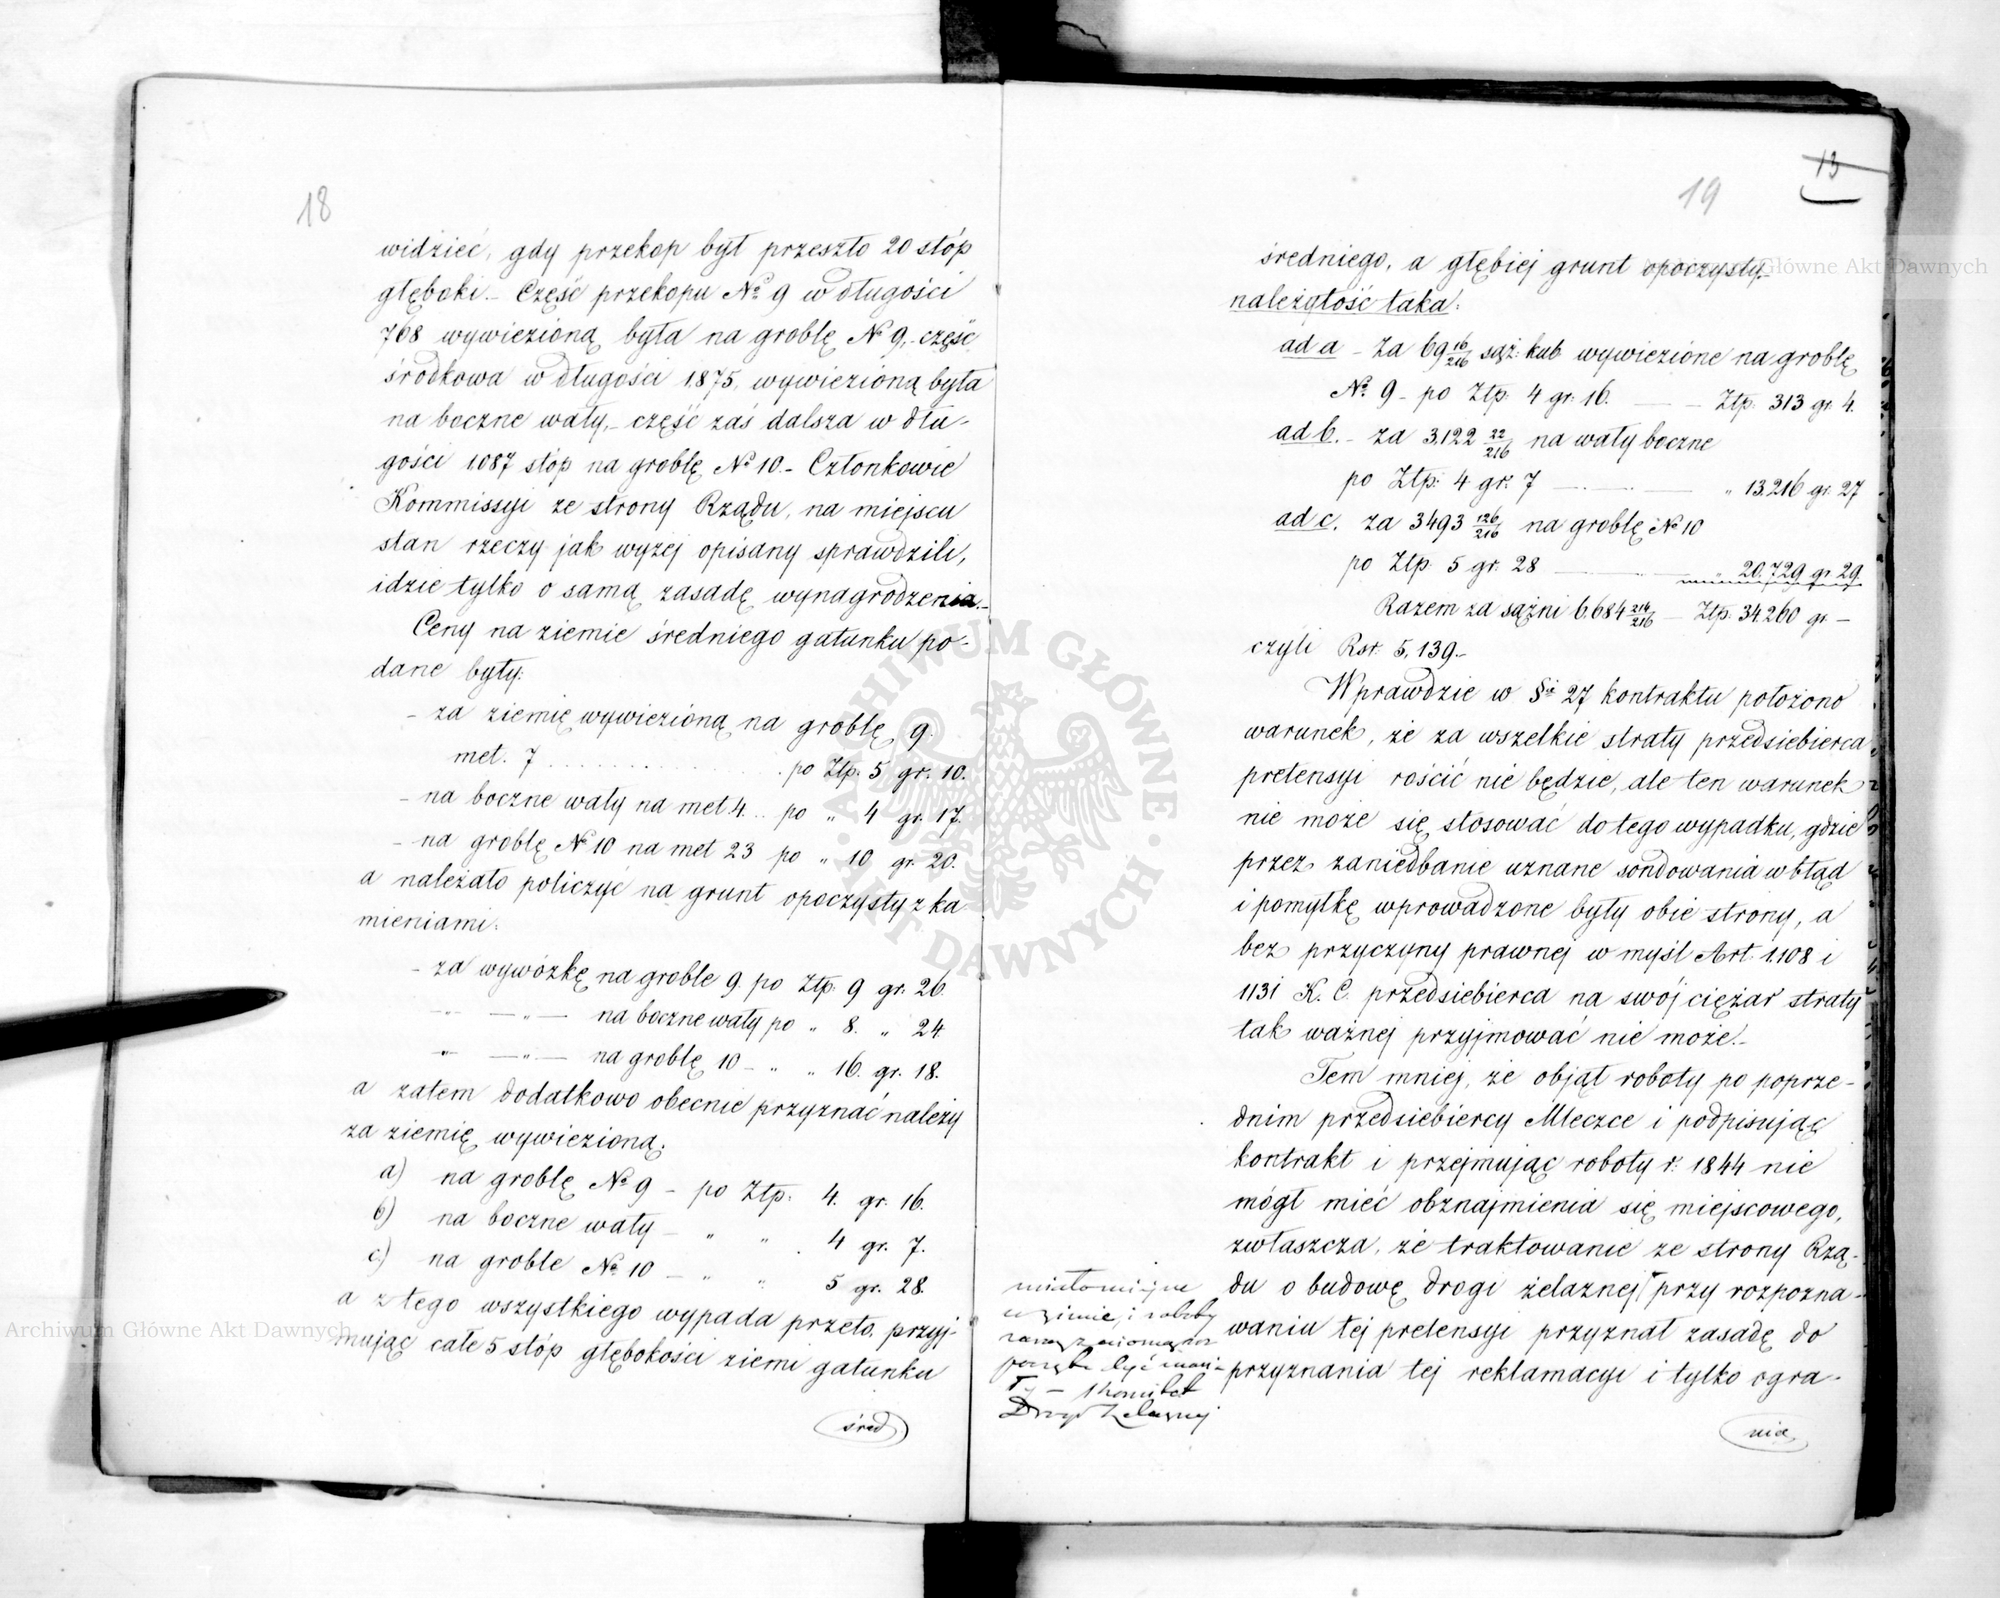 18
widzieć, gdy przekop był przeszło 20 stóp
głęboki. – Część przekopu № 9 w długości
768 wywiezioną była na groblę № 9, – część
środkowa w długości 1875, wywiezioną była
na boczne wały, – część zaś dalsza w dłu-
gości 1087 stóp na groblę № 10. – Członkowie
Kommissyi ze strony Rządu, na miejscu
stan rzeczy jak wyżej opisany sprawdzili,
idzie tylko o samą zasadę wynagrodzenia. –
Ceny na ziemie średniego gatunku po-
dane były:
– za ziemię wywiezioną na groblę 9.
met. 7 . . . . . . . po Złp. 5 gr. 10.
– na boczne wały na met 4. .. po „ 4 gr. 17.
– na groblę № 10 na met 23 po „ 10 gr. 20.
a należało policzyć na grunt opoczysty z ka
mieniami:
– za wywózkę na groble 9. po Złp. 9 gr. 26.
–„– —„— na boczne wały po „ 8. „ 24.
–„– —„— na groblę 10 – „ „ 16. gr. 18.
a zatem dodatkowo obecnie przyznać należy
za ziemię wywiezioną:
a) na groblę № 9 – po Złp: 4. gr. 16.
b) na boczne wały – „ „ . 4 gr. 7.
c) na groble № 10 – „ „ 5 gr. 28.
a z tego wszystkiego wypada przeto, przyj-
mując całe 5 stóp głębokości ziemi gatunku
śred
13
19
średniego, a głębiej grunt opoczysty –
należytość taka:
ad a – Za 69 16/216 sąż: kub wywiezione na groblę
№ 9 – po Złp. 4 gr. 16. — – Złp. 313 gr. 4.
ad b. – za 3.122 22/216 na wały boczne
po Złp: 4 gr. 7 — — „ 13.216 gr. 27
ad c. za 3493 126/216 na groblę № 10
po Złp. 5 gr. 28 — — „ 20.729 gr. 29.
Razem za sążni 6.684 216/216 – Złp. 34.260 gr –
czyli Rsr. 5,139. –
Wprawdzie w §ie 27 kontraktu położono
warunek, że za wszelkie straty przedsiebierca
pretensyi rościć nie będzie, ale ten warunek
nie może się stosować do tego wypadku, gdzie
przez zaniedbanie uznane sondowania w błąd
i pomyłkę wprowadzone były obie strony, a
bez przyczyny prawnej w myśl Art. 1.108 i
1131 K. C. przedsiebierca na swój ciężar straty
tak ważnej przyjmować nie może. –
Tem mniej, że objął roboty po poprze-
dnim przedsiebiercy Mleczce i podpisując
kontrakt i przejmując roboty r. 1844 nie
mógł mieć obznajmienia się miejscowego,
zwłaszcza, że traktowanie ze strony Rzą-
du o budowę drogi żelaznej przy rozpozna-
waniu tej pretensyi przyznał zasadę do
przyznania tej reklamacyi i tylko ogra-
w zimie, i roboty
Drogi Żelaznej
nia
ARCHIWUM GŁÓWNE AKT DAWNYCH
Archiwum Główne Akt Dawnych
Główne Akt Dawnych